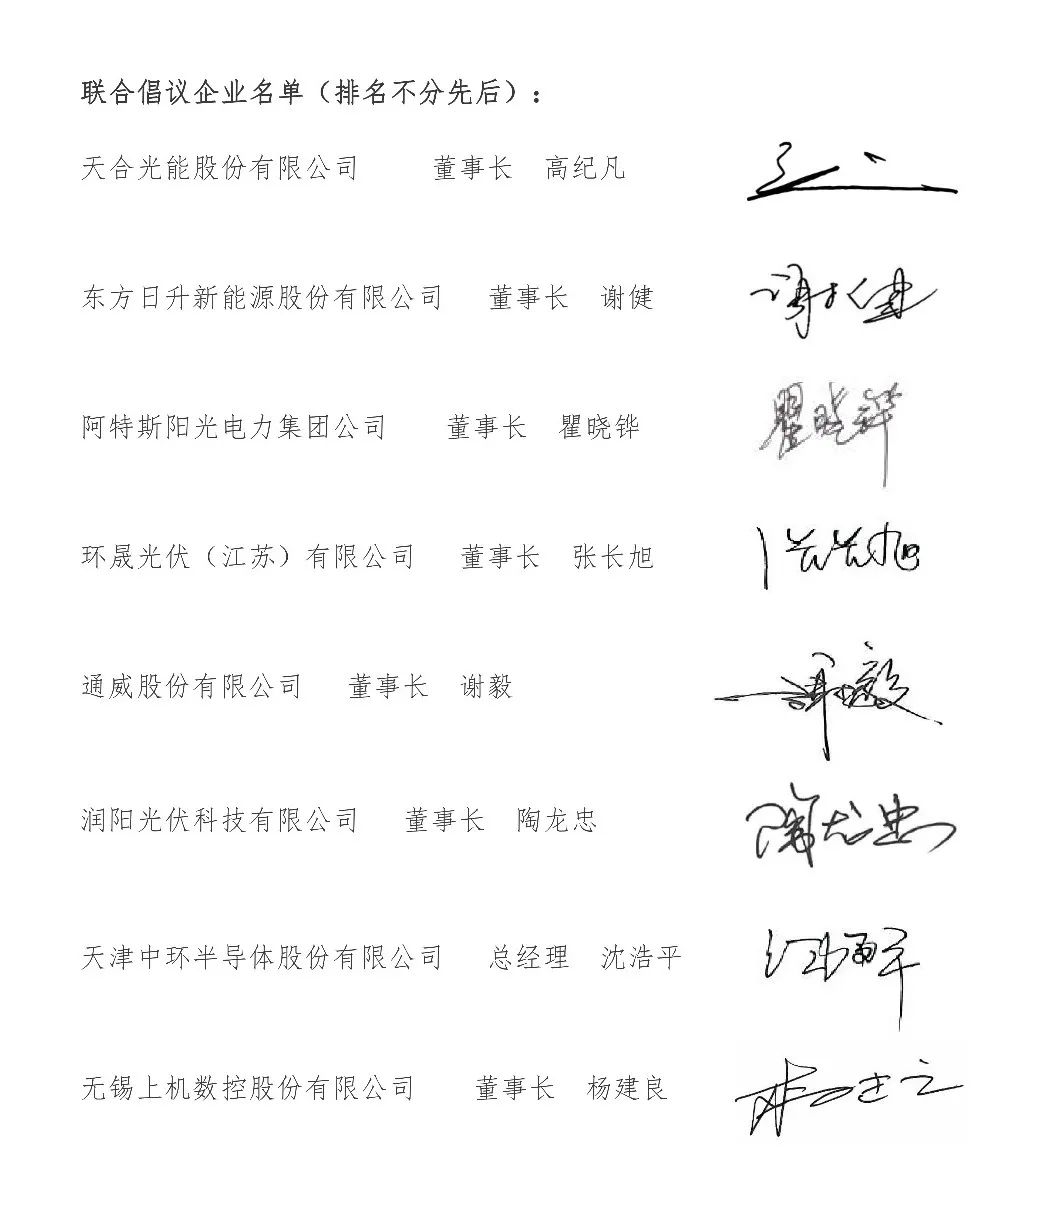 联合倡议企业名单（排名不分先后）：
天合光能股份有限公司 董事长 高纪凡
东方日升新能源股份有限公司 董事长 谢健 谢健
阿特斯阳光电力集团公司 董事长 瞿晓铧 瞿晓铧
环晟光伏（江苏）有限公司 董事长 张长旭
通威股份有限公司 董事长 谢毅 谢毅
润阳光伏科技有限公司 董事长 陶龙忠 陶龙忠
天津中环半导体股份有限公司 总经理 沈浩平
无锡上机数控股份有限公司 董事长 杨建良